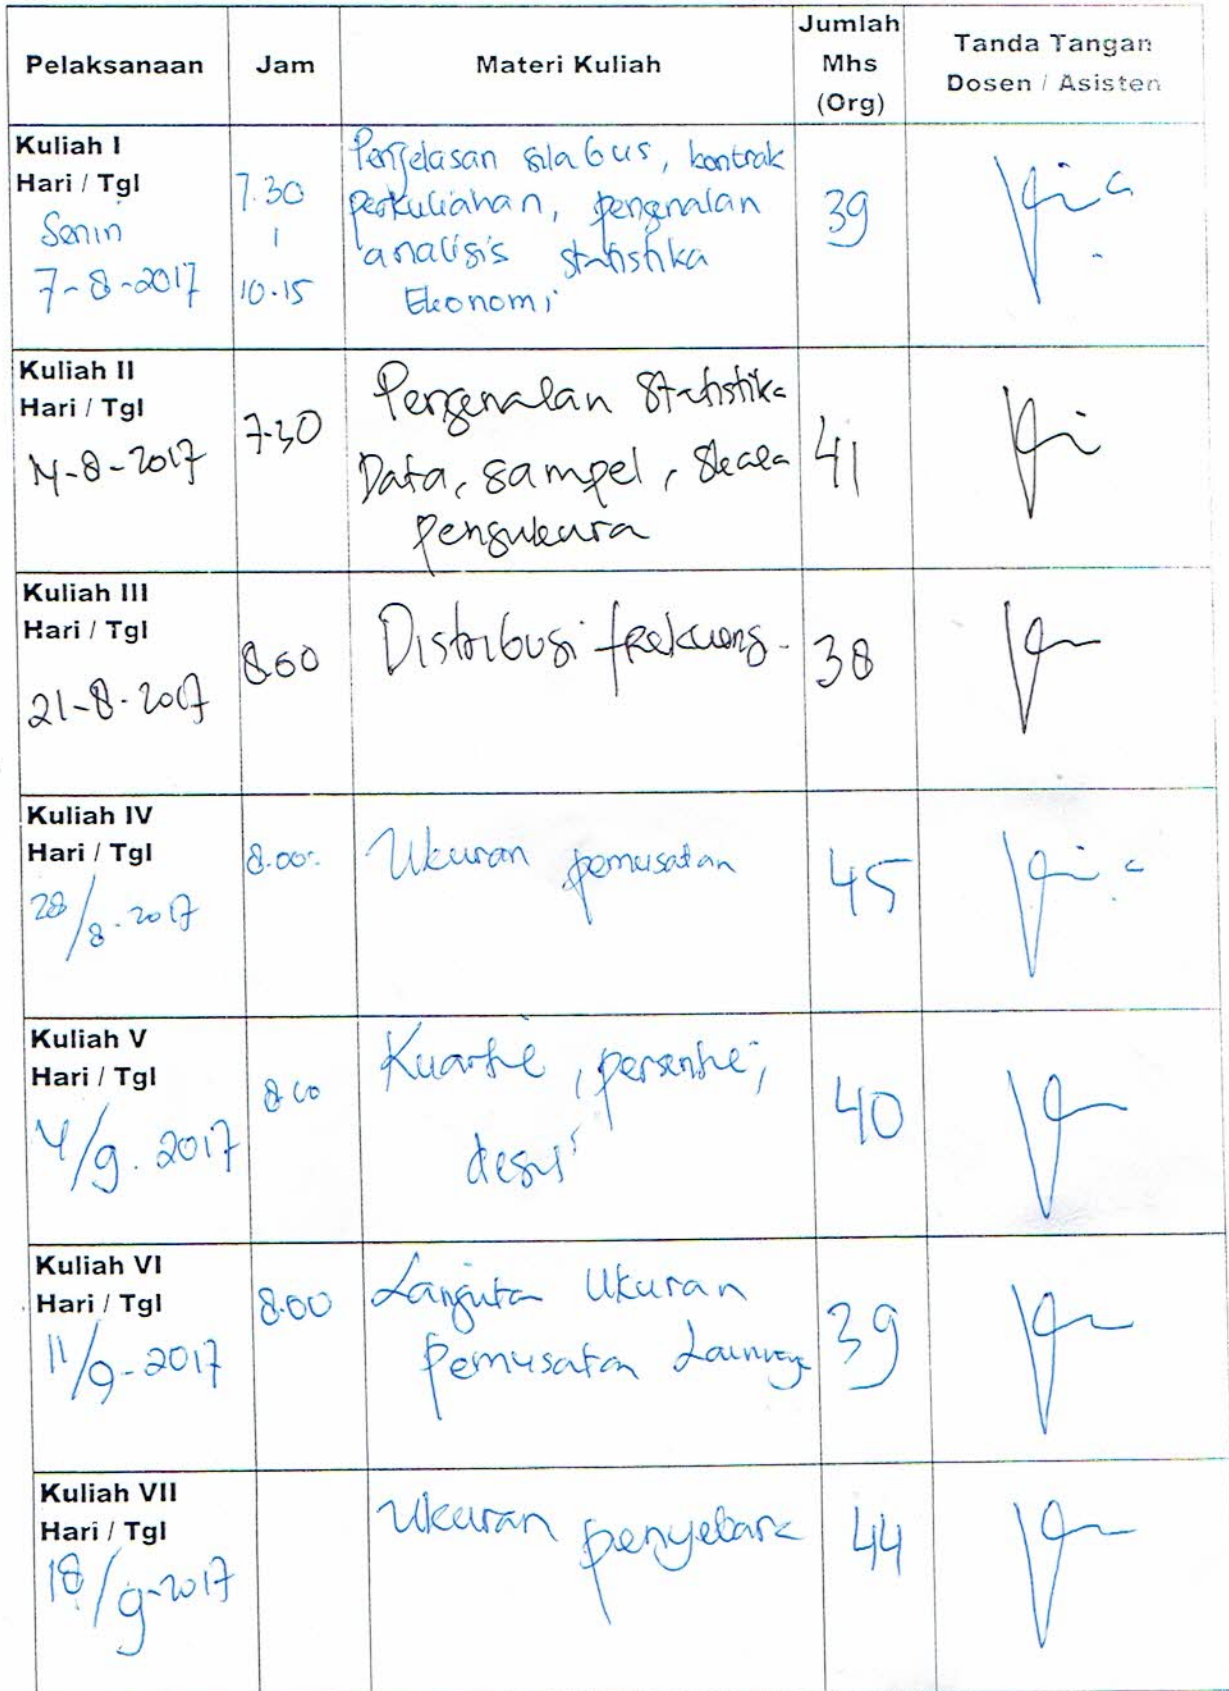 Pelaksanaan Jam Materi Kuliah Jumlah Mhs (Org) Tanda Tangan Dosen / Asisten
Kuliah I
Hari / Tgl
Senin
7-8-2017
7.30
|
10.15
Penjelasan silabus, kontrak
perkuliahan, pengenalan
analisis statistika
Ekonomi
39
Kuliah II
Hari / Tgl
14-8-2017
7.30
Pengenalan Statistika
Data, sampel, Skala
pengukura
41
Kuliah III
Hari / Tgl
21-8-2017
8.00
Distribusi frekuens
38
Kuliah IV
Hari / Tgl
28/8-2017
8.00
Ukuran pemusatan
45
Kuliah V
Hari / Tgl
4/9.2017
8.00
Kuartil, persentil,
desil
40
Kuliah VI
Hari / Tgl
11/9-2017
8.00
Lanjutan Ukuran
pemusatan Lainnya
39
Kuliah VII
Hari / Tgl
18/9-2017
Ukuran penyebara
44